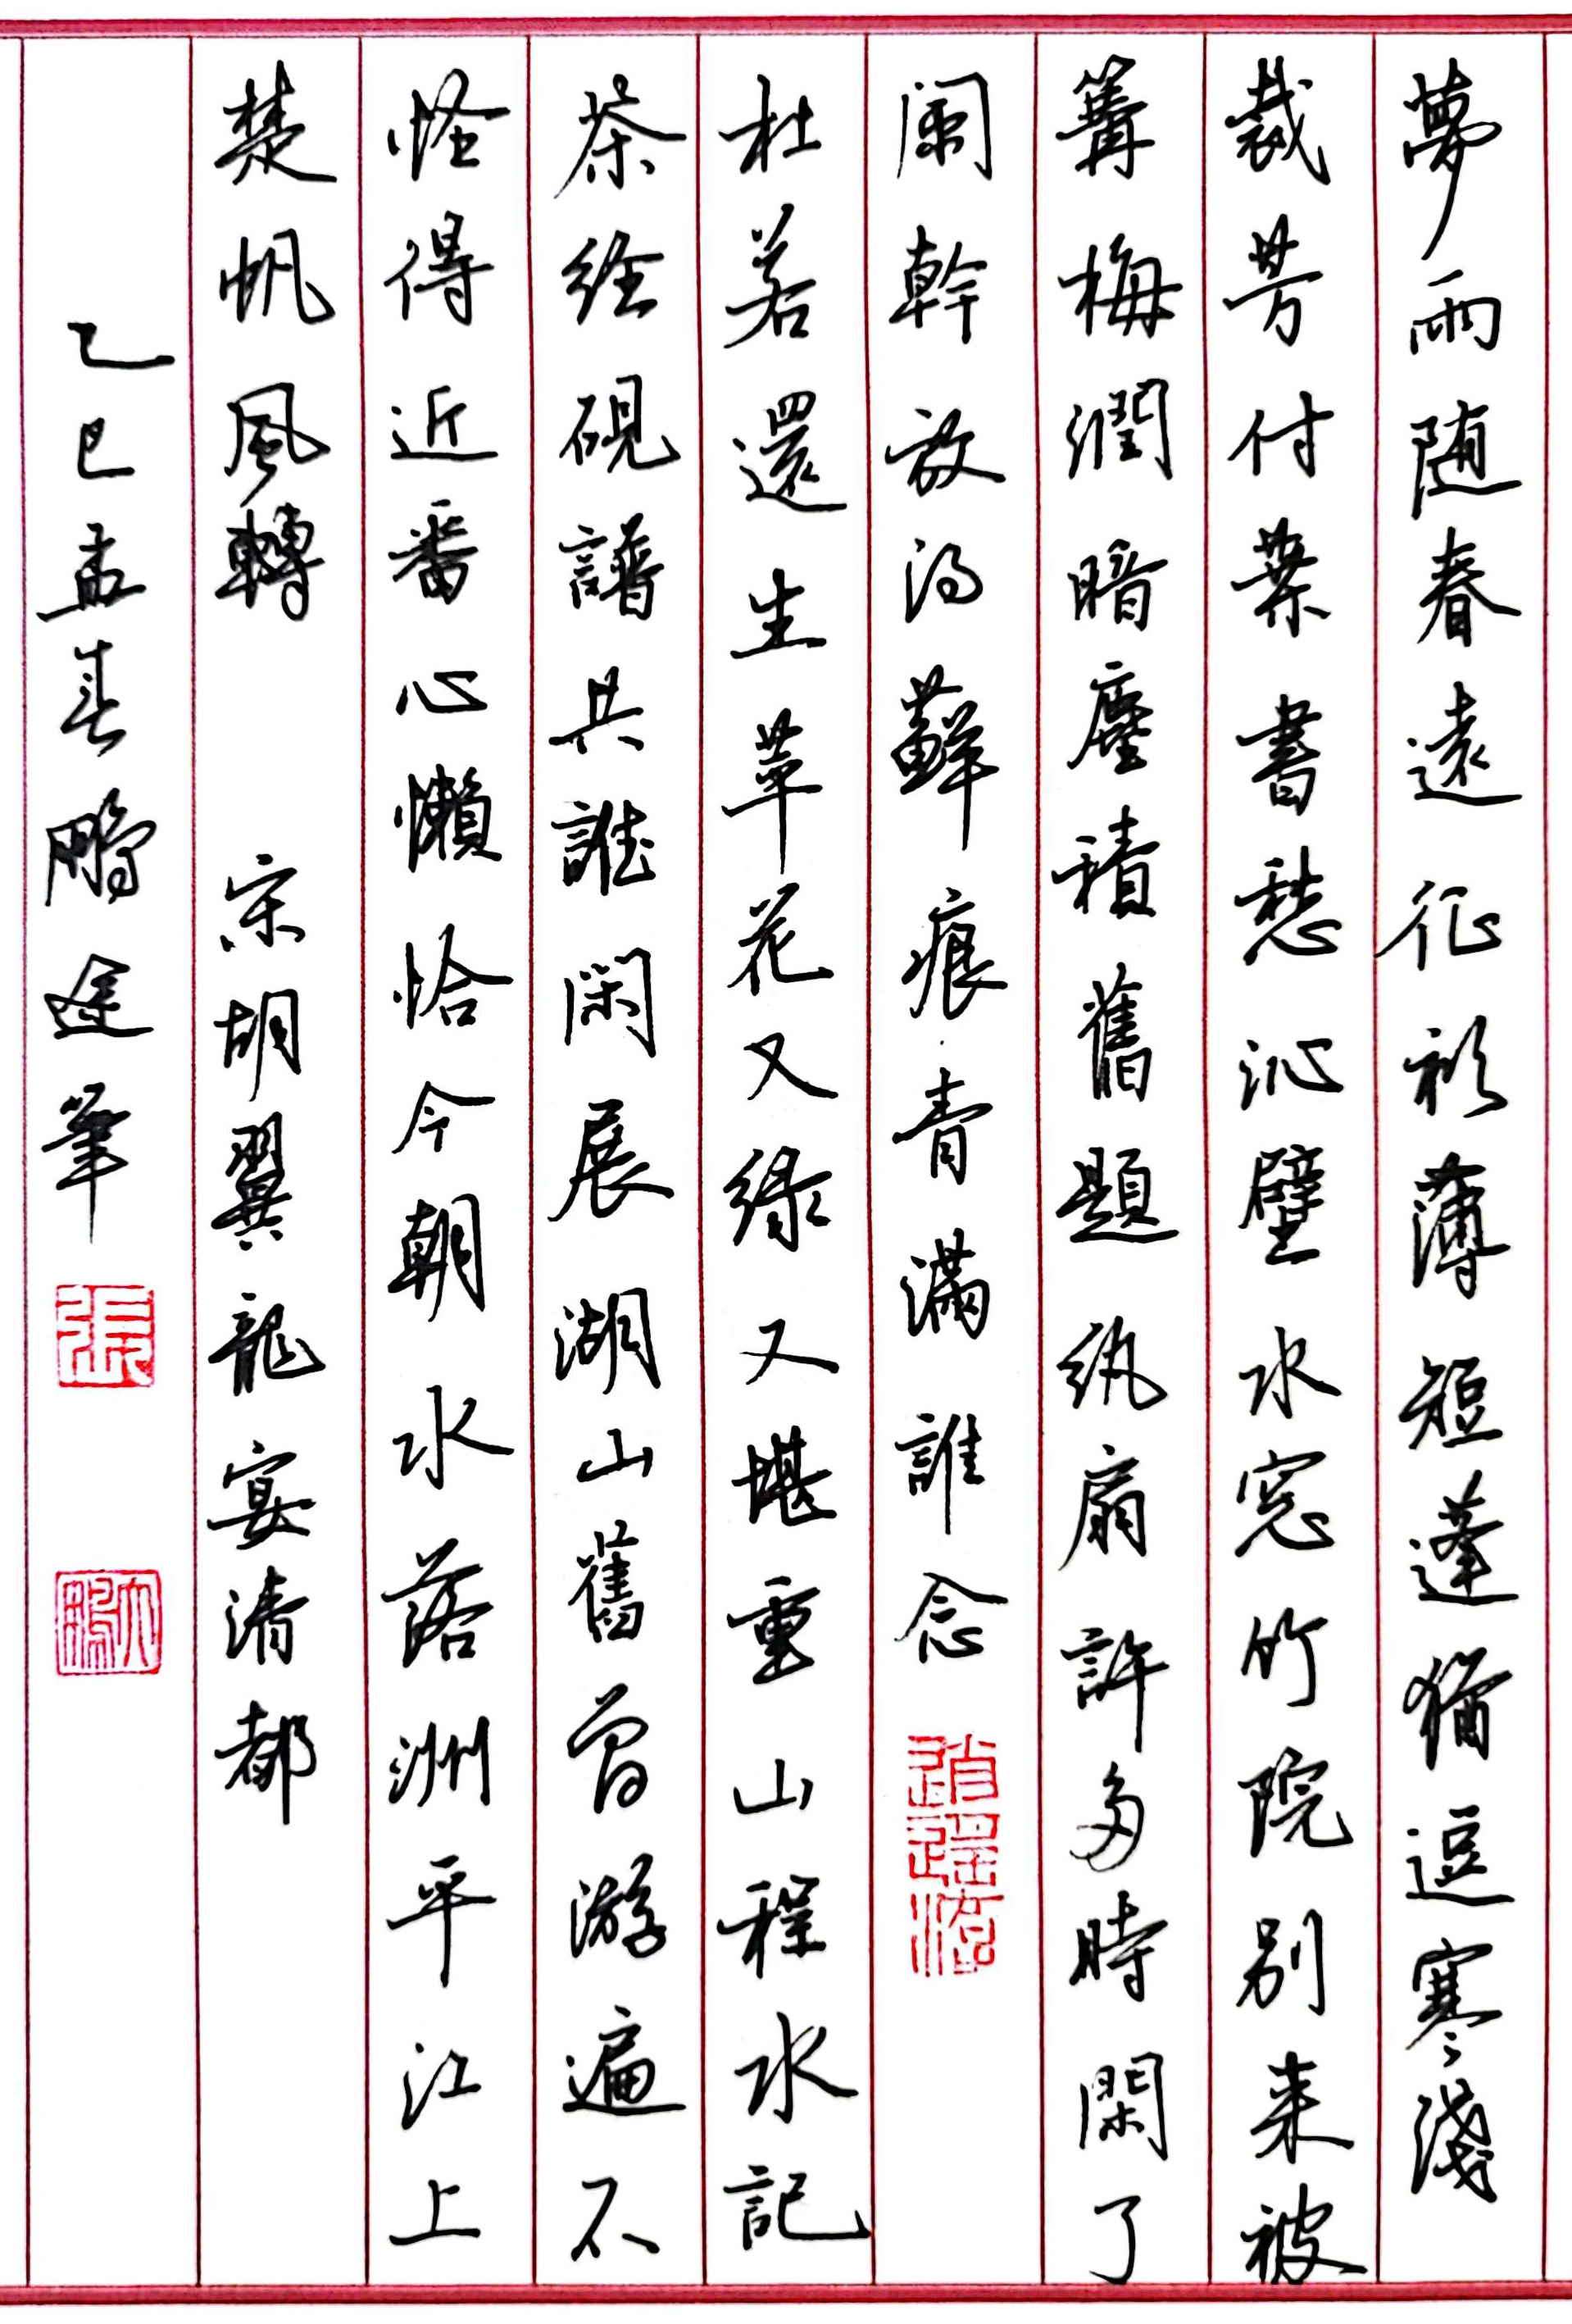 夢雨随春遠征衫薄短蓬猶逗寒淺
裁芳付葉書愁沁壁水窓竹院别来被
篝梅潤暗塵積舊題紈扇許多時閑了
闌幹放得蘚痕青滿誰念
杜若還生苹花又绿又堪重山程水記
茶经硯譜共誰閑展湖山舊曾游遍不
怪得近番心懶恰今朝水落洲平江上
楚帆風轉 宋胡翼龍宴清都
乙巳孟春鵬途筆
張